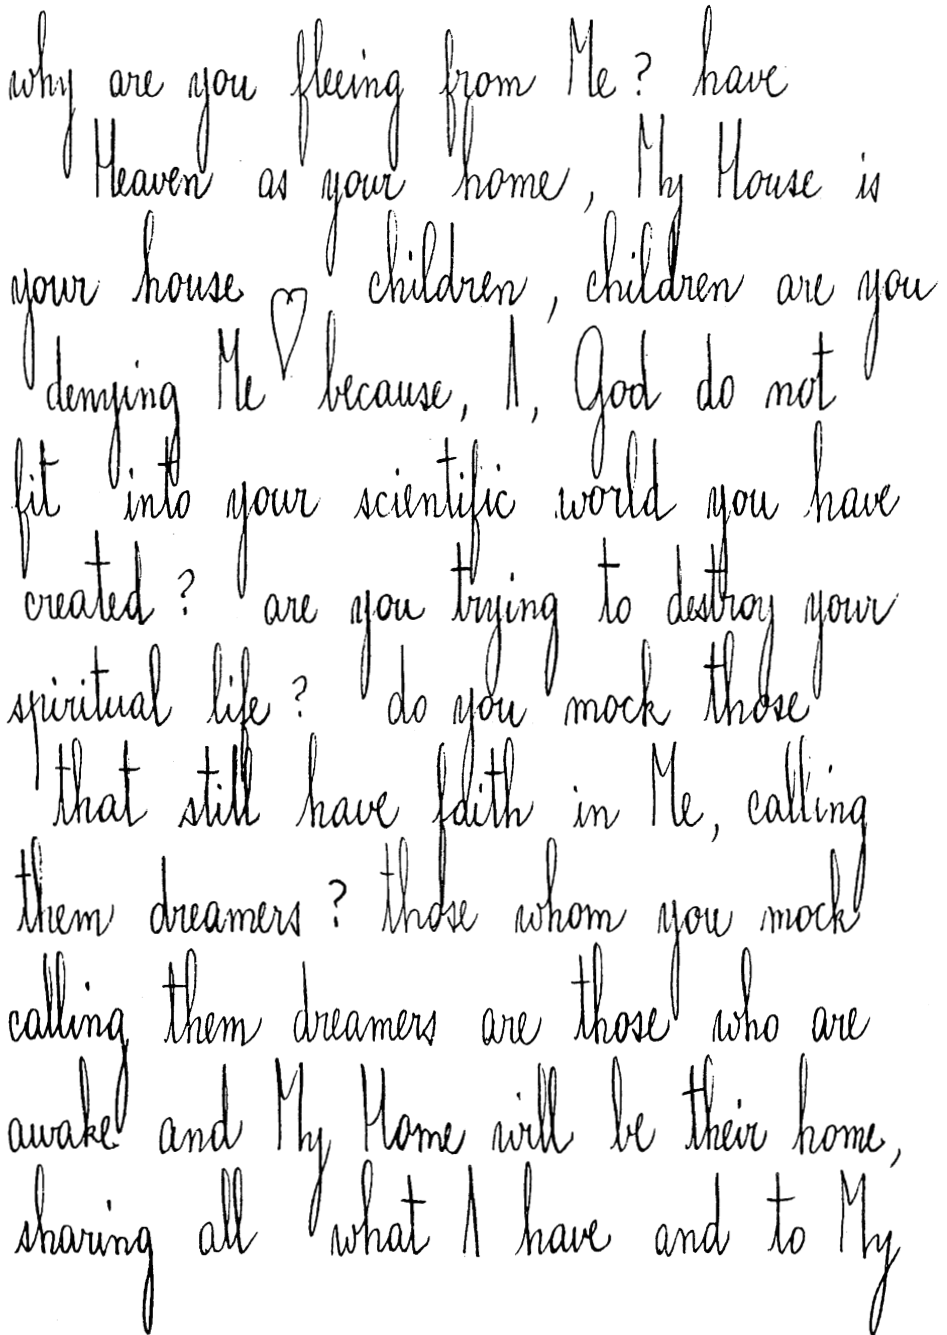 why are you fleeing from Me? have
Heaven as your home, My House is
your house ♡ children, children are you
denying Me because, I, God do not
fit into your scientific world you have
created? are you trying to destroy your
spiritual life? do you mock those
that still have faith in Me, calling
them dreamers? those whom you mock
calling them dreamers are those who are
awake and My Home will be their home,
sharing all what I have and to My